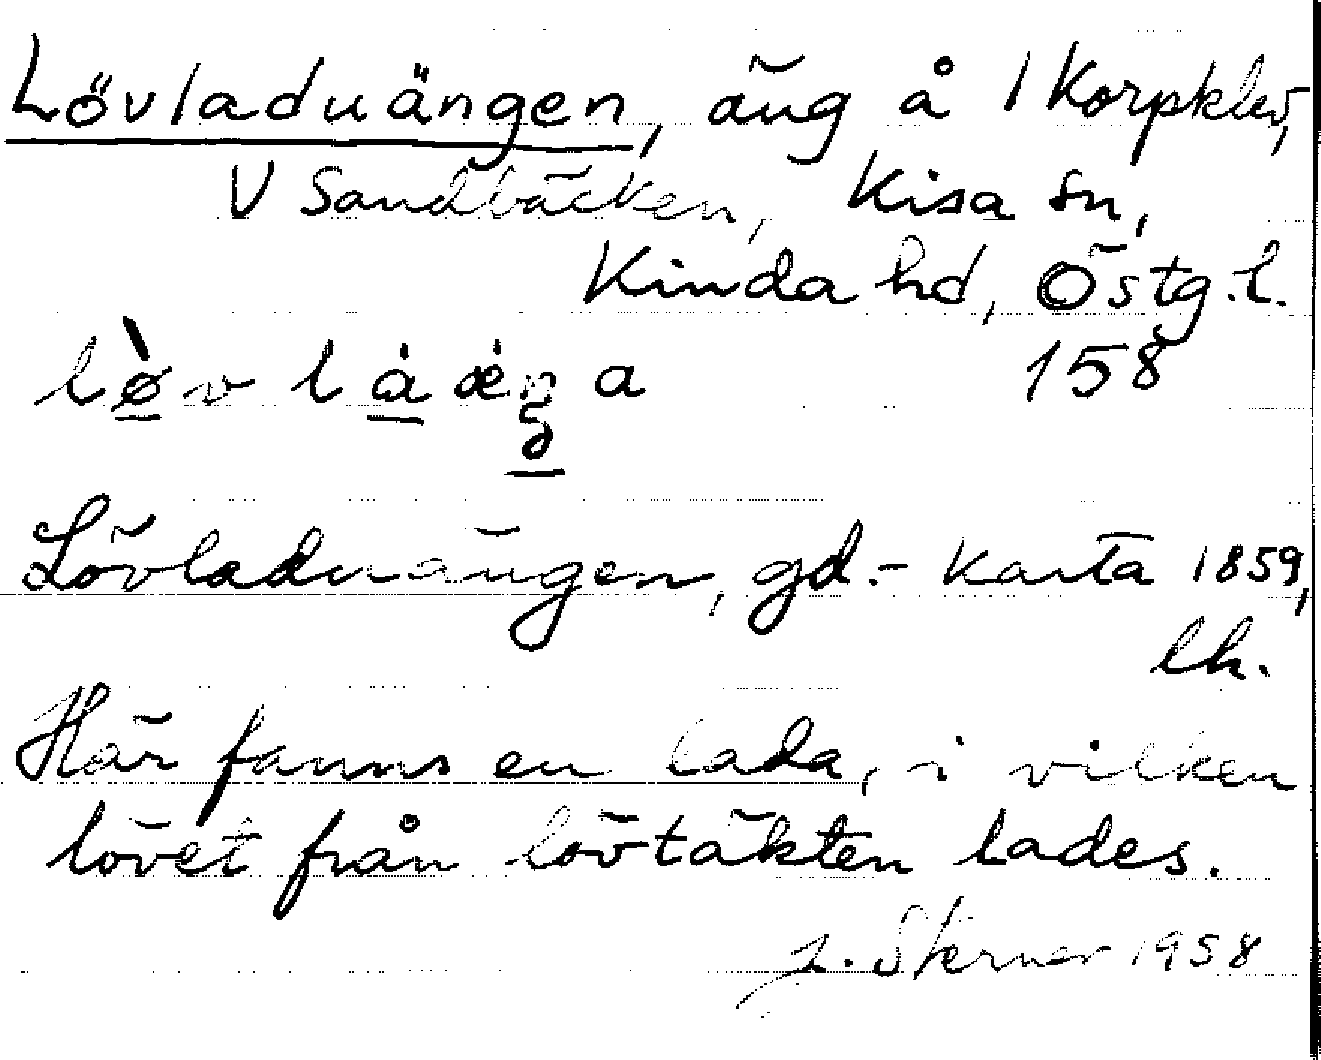 Lövladuängen, äng å 1 Korpklev,
V Sandbäcken, Kisa sn,
Kinda hd, Östg.l.
158
Lövladuängen, gd.- karta 1859,
lh.
Här fanns en lada, i vilken
lövet från lövtäkten lades.
Sterner 1958